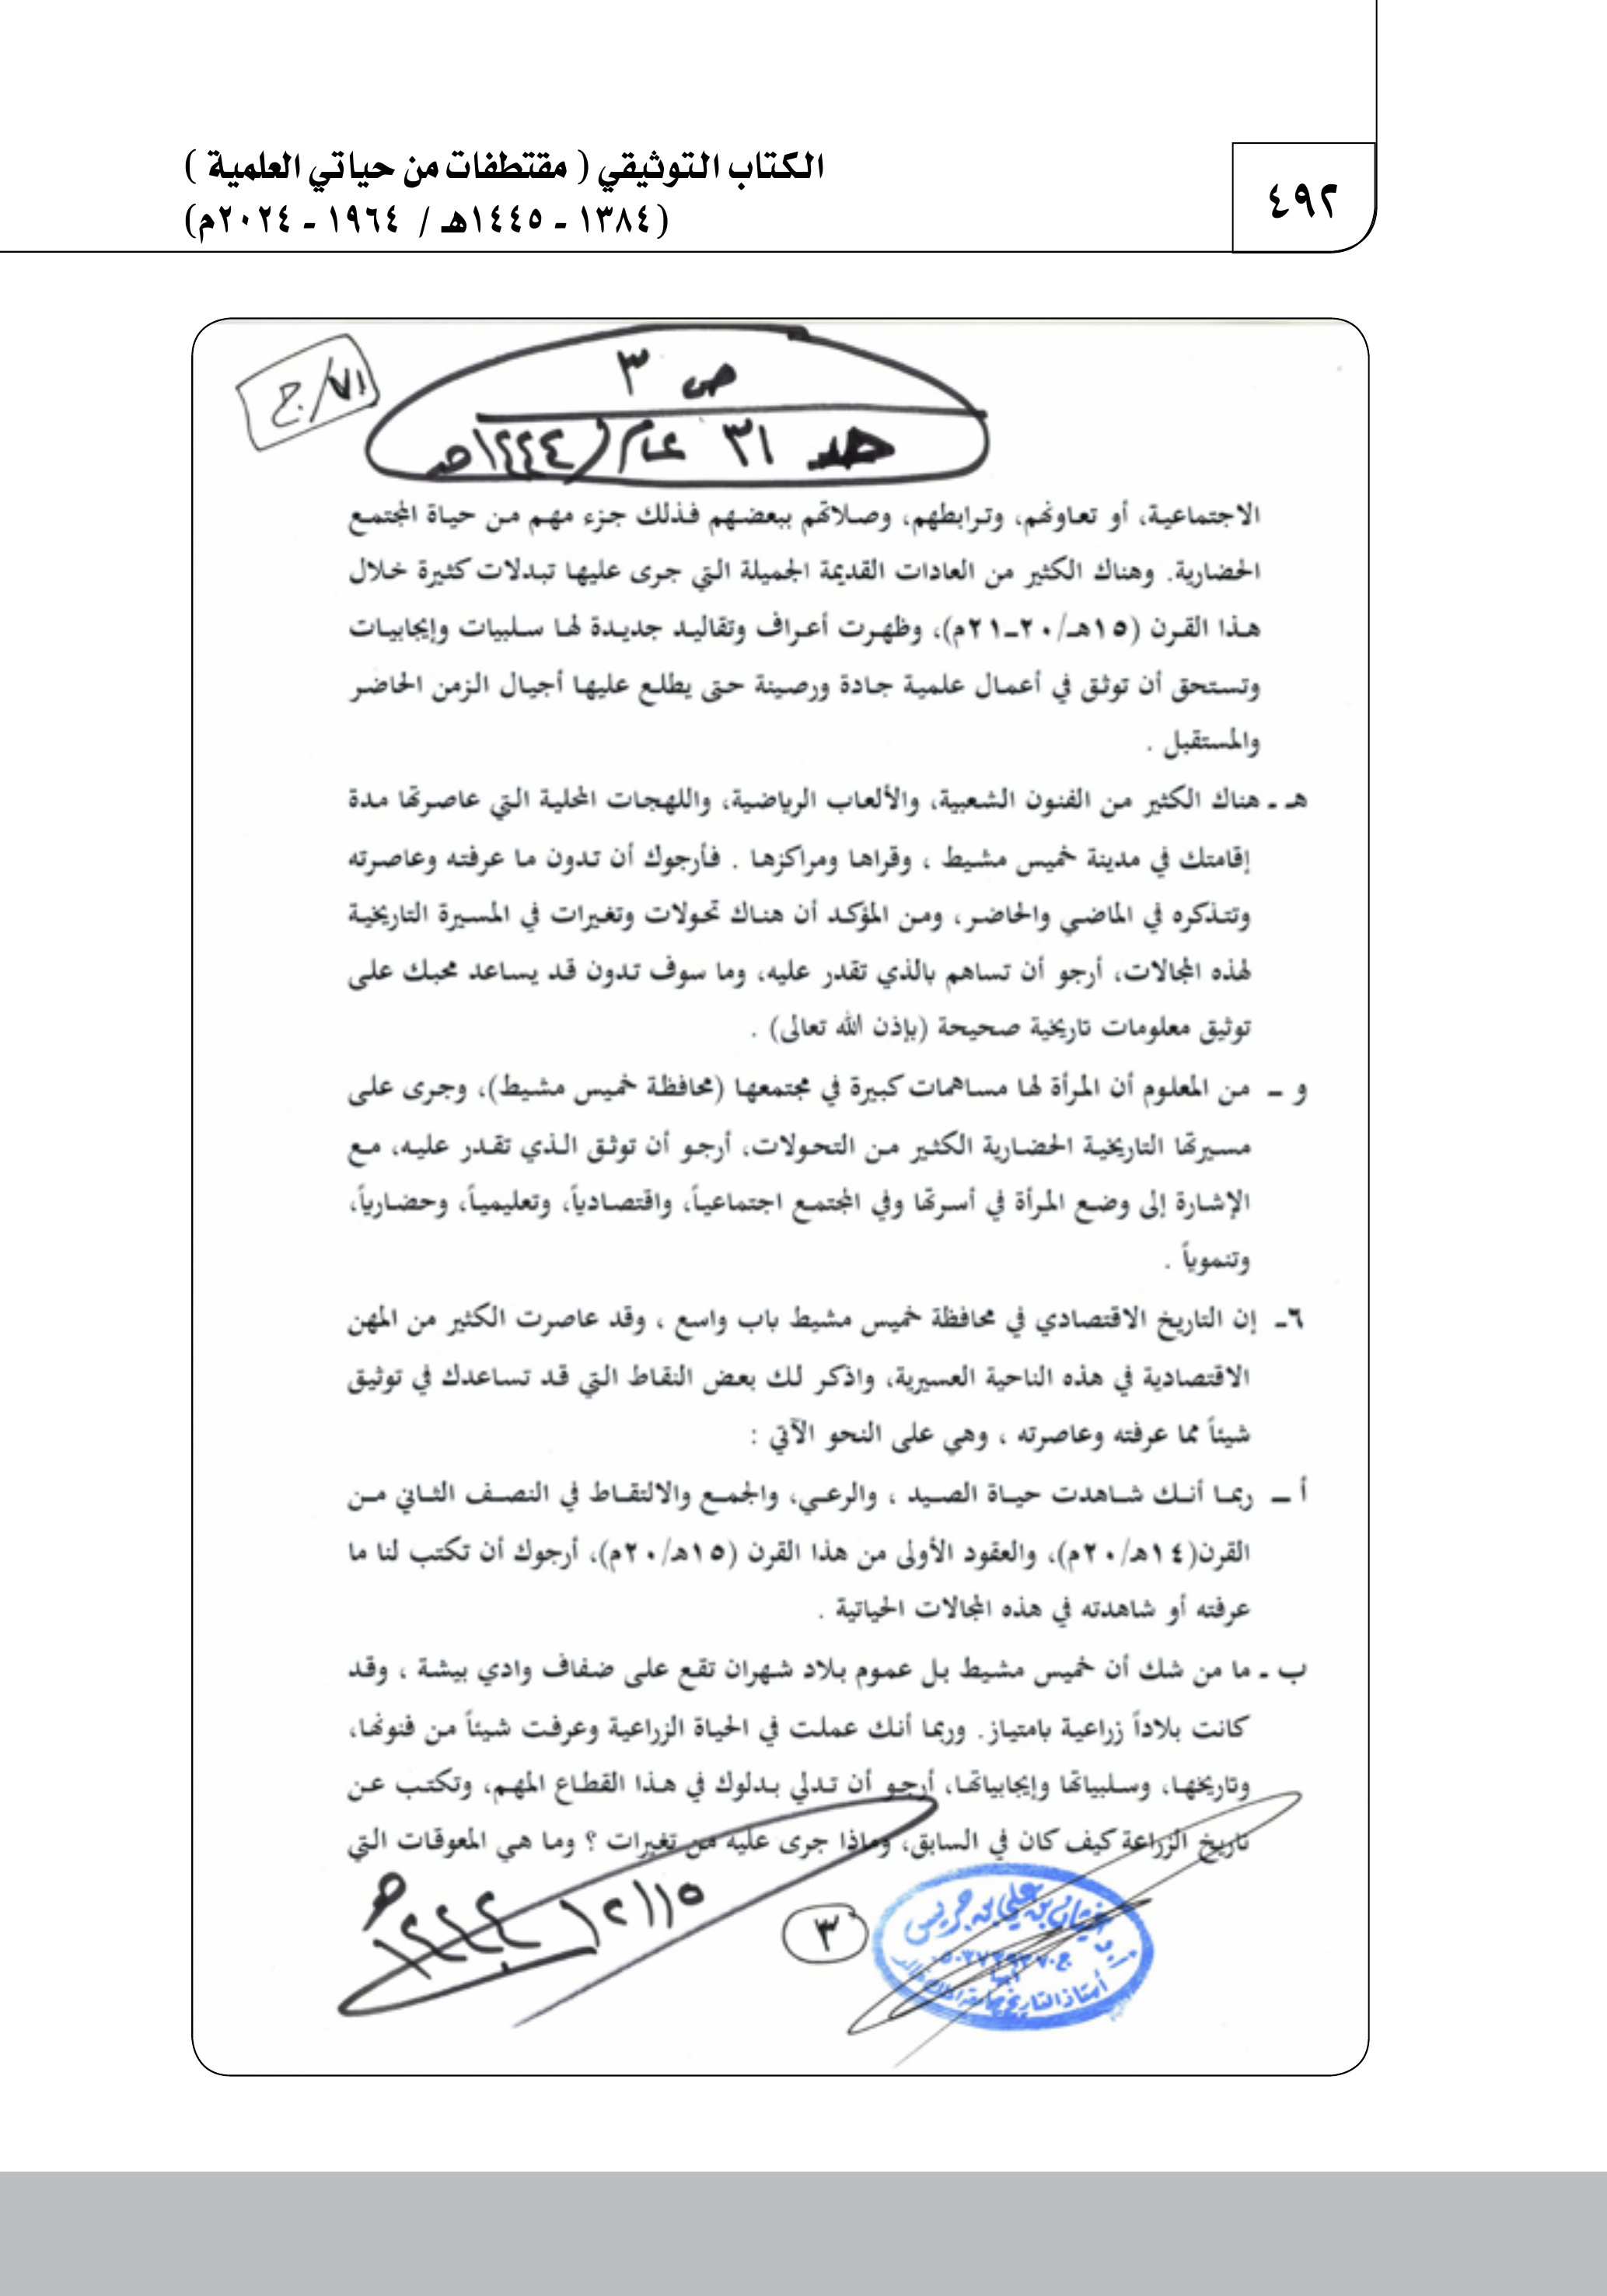 الكتاب التوثيقي ( مقتطفات من حياتي العلمية )
(١٣٨٤ - ١٤٤٥هـ / ١٩٦٤ - ٢٠٢٤م)
٤٩٢
ص ٣
٣١ عام (١٤٤٤هـ
الاجتماعية، أو تعاونهم، وترابطهم، وصلاتهم ببعضهم فذلك جزء مهم من حياة المجتمع
الحضارية. وهناك الكثير من العادات القديمة الجميلة التي جرى عليها تبدلات كثيرة خلال
هذا القرن (١٥هـ/٢٠-٢١م)، وظهرت أعراف وتقاليد جديدة لها سلبيات وإيجابيات
وتستحق أن توثق في أعمال علمية جادة ورصينة حتى يطلع عليها أجيال الزمن الحاضر
والمستقبل .
هـ - هناك الكثير من الفنون الشعبية، والألعاب الرياضية، واللهجات المحلية التي عاصرتها مدة
إقامتك في مدينة خميس مشيط ، وقراها ومراكزها . فأرجوك أن تدون ما عرفته وعاصرته
وتتذكره في الماضي والحاضر، ومن المؤكد أن هناك تحولات وتغيرات في المسيرة التاريخية
لهذه المجالات، أرجو أن تساهم بالذي تقدر عليه، وما سوف تدون قد يساعد محبك على
توثيق معلومات تاريخية صحيحة (بإذن الله تعالى) .
و - من المعلوم أن المرأة لها مساهمات كبيرة في مجتمعها (محافظة خميس مشيط)، وجرى على
مسيرتها التاريخية الحضارية الكثير من التحولات، أرجو أن توثق الذي تقدر عليه، مع
الإشارة إلى وضع المرأة في أسرتها وفي المجتمع اجتماعياً، واقتصادياً، وتعليمياً، وحضارياً،
وتنموياً .
٦- إن التاريخ الاقتصادي في محافظة خميس مشيط باب واسع ، وقد عاصرت الكثير من المهن
الاقتصادية في هذه الناحية العسيرية، واذكر لك بعض النقاط التي قد تساعدك في توثيق
شيئاً مما عرفته وعاصرته ، وهي على النحو الآتي :
أ - ربما أنك شاهدت حياة الصيد ، والرعي، والجمع والالتقاط في النصف الثاني من
القرن(١٤هـ/٢٠م)، والعقود الأولى من هذا القرن (١٥هـ/٢٠م)، أرجوك أن تكتب لنا ما
عرفته أو شاهدته في هذه المجالات الحياتية .
ب - ما من شك أن خميس مشيط بل عموم بلاد شهران تقع على ضفاف وادي بيشة ، وقد
كانت بلاداً زراعية بامتياز. وربما أنك عملت في الحياة الزراعية وعرفت شيئاً من فنونها،
وتاريخها، وسلبياتها وإيجابياتها، أرجو أن تدلي بدلوك في هذا القطاع المهم، وتكتب عن
تاريخ الزراعة كيف كان في السابق، وماذا جرى عليه من تغيرات ؟ وما هي المعوقات التي
٣
بن علي بن جريس
أبها
أستاذ التاريخ